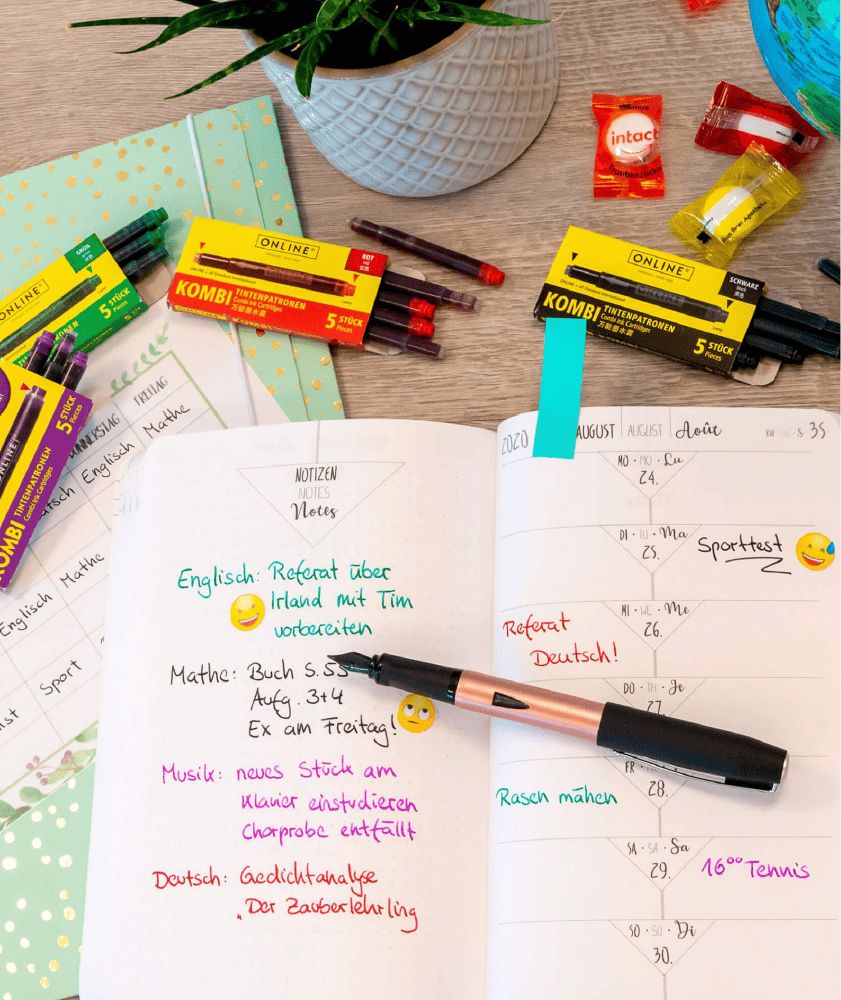 intact
Traubenzucker
ONLINE
GRÜN
5 STÜCK
Pieces
ONLINE
ROT
red
红色
KOMBI TINTENPATRONEN
Combi Ink Cartridges
万能墨水囊
5 STÜCK
Pieces
ONLINE
SCHWARZ
black
黑色
KOMBI TINTENPATRONEN
Combi Ink Cartridges
万能墨水囊
5 STÜCK
Pieces
ONLINE
KOMBI TINTENPATRONEN
Combi Ink Cartridges
5 STÜCK
Pieces
FREITAG
Englisch Mathe
Mathe
Englisch
Sport
NOTIZEN
NOTES
Notes
Englisch: Referat über
Irland mit Tim
vorbereiten
Mathe: Buch S. 55
Aufg. 3+4
Ex am Freitag!
Musik: neues Stück am
Klavier einstudieren
Chorprobe entfällt
Deutsch: Gedichtanalyse
„Der Zauberlehrling
2020 AUGUST AUGUST Août 35
MO · MO · Lu
24.
DI · TU · Ma
25.
Sporttest
MI · WE · Me
26.
Referat
Deutsch!
DO · TH · Je
27
FR
28.
Rasen mähen
SA · SA · Sa
29.
16⁰⁰ Tennis
SO · SU · Di
30.